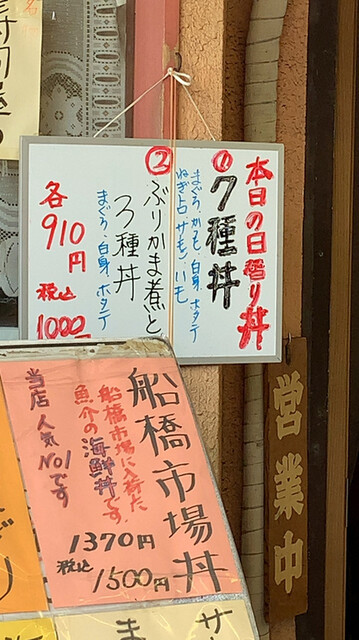 本日の日替り丼
①7種丼
まぐろ、かつを、白身、ホタテ
ねぎ占、サーモン、いも
②ぶりかま煮と
3種丼
まぐろ、白身、ホタテ
各
910円
税込
1000円
営業中
船橋市場丼
船橋市場に入荷した
魚介の海鮮丼です。
1370円
税込
1500円
当店人気No1です